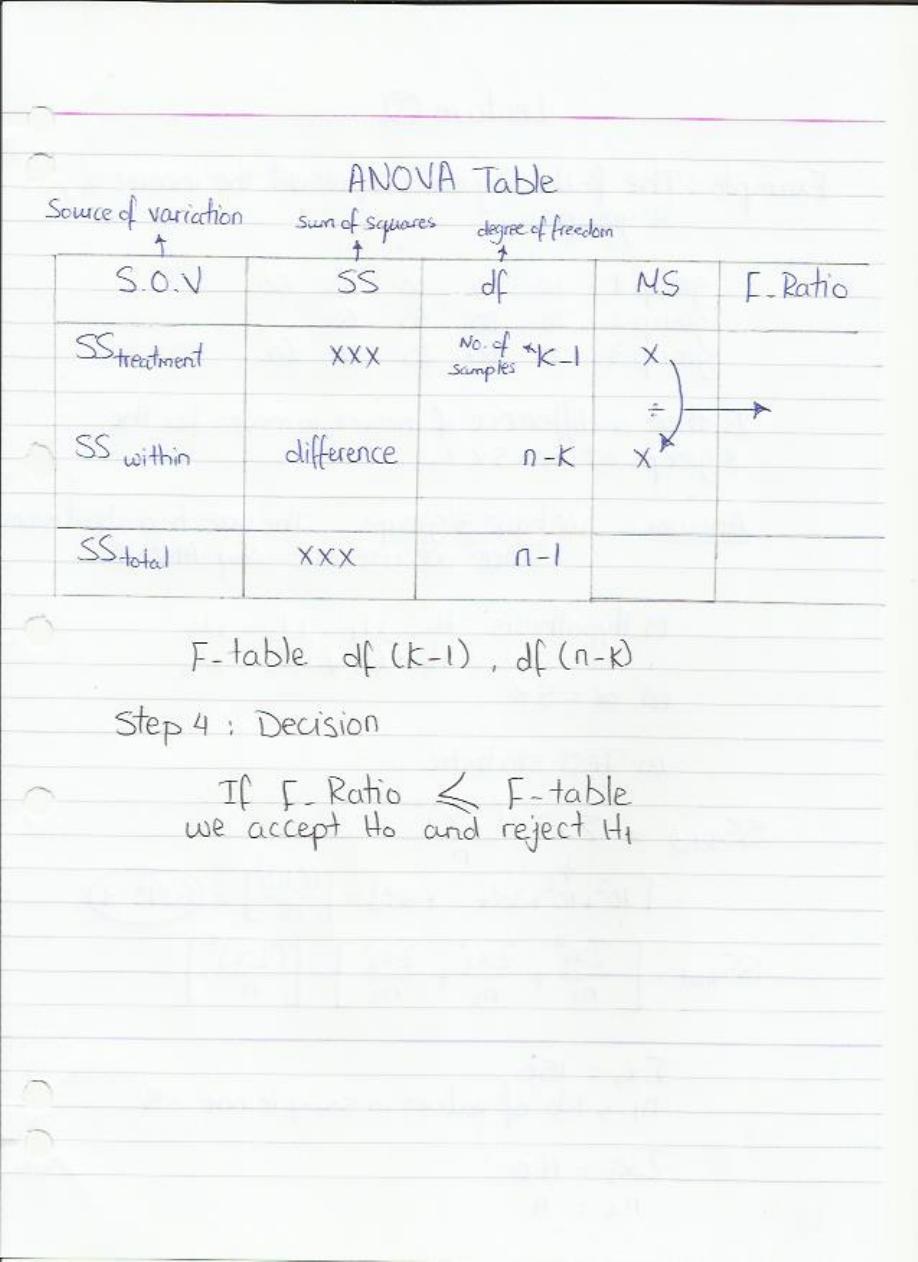 ANOVA Table
Source of variation sum of squares degree of freedom
S.O.V SS df MS F-Ratio
SS treatment XXX No. of samples K-1 X
÷
SS within difference n-K X
SS total XXX n-1
F-table df (K-1), df (n-K)
Step 4 : Decision
If F-Ratio ⩽ F-table
we accept H0 and reject H1